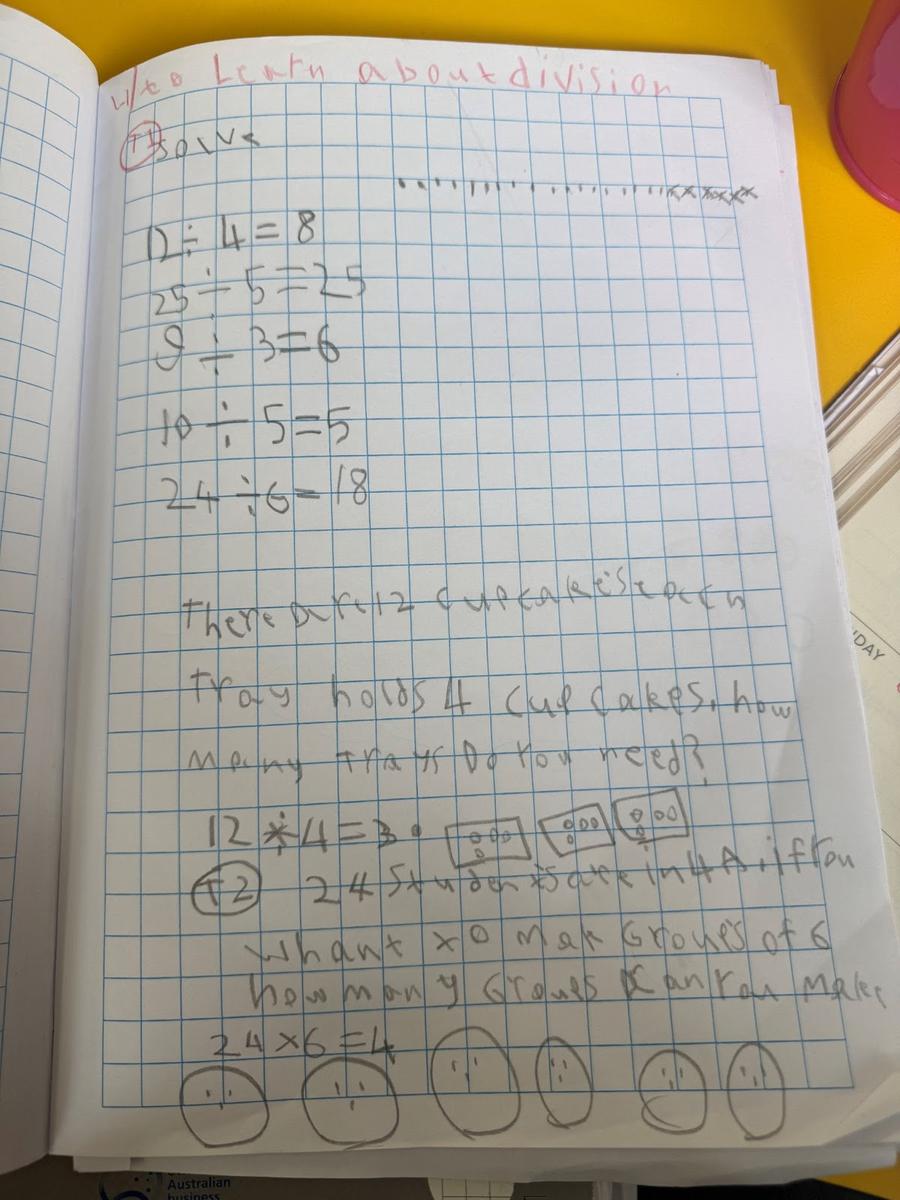 L/I to Learn about division
T1 solve
12 ÷ 4 = 8
25 ÷ 5 = 25
9 ÷ 3 = 6
10 ÷ 5 = 5
24 ÷ 6 = 18
there are 12 cupcakes each
tray holds 4 cupcakes. how
many trays Do you need?
12 ÷ 4 = 3
T2 24 Students are in 4A, if you
whant to mak Groups of 6
how many Groups can you make
24 × 6 = 4
DAY
Australian
business